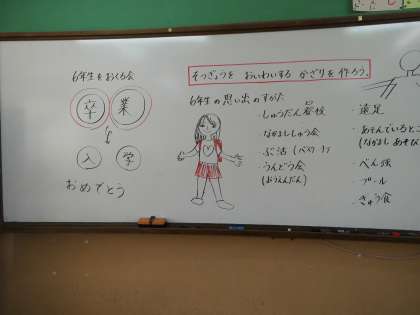 6年生をおくる会
卒業
入学
おめでとう
そつぎょうを おいわいする かざりを作ろう。
6年生の思い出のすがた
・しゅうだん登校
・なかよししゅう会
・ぶ活
・うんどう会
(おうえんだん)
・遠足
・あそんでいるところ
(なかよしあそび
・べん強
・プール
・きゅう食